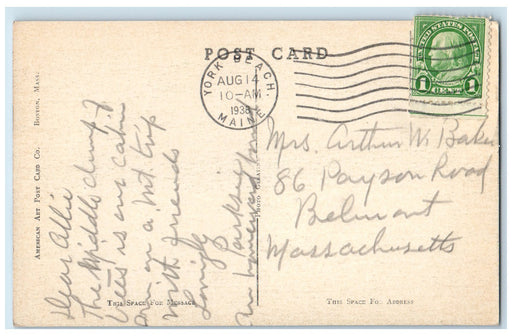 POST CARD
YORK BEACH.
AUG 14
10-AM
1938
MAINE
UNITED STATES POSTAGE
1 CENT 1
AMERICAN ART POST CARD CO. BOSTON, MASS.
Dear Allie
The Middle clump of
trees is our cabin
Am on a mt. trip
with friends
Lovingly
THIS SPACE FOR MESSAGE
Mrs. Arthur W. Baker
86 Payson Road
Belmont
Massachusetts
THIS SPACE FOR ADDRESS